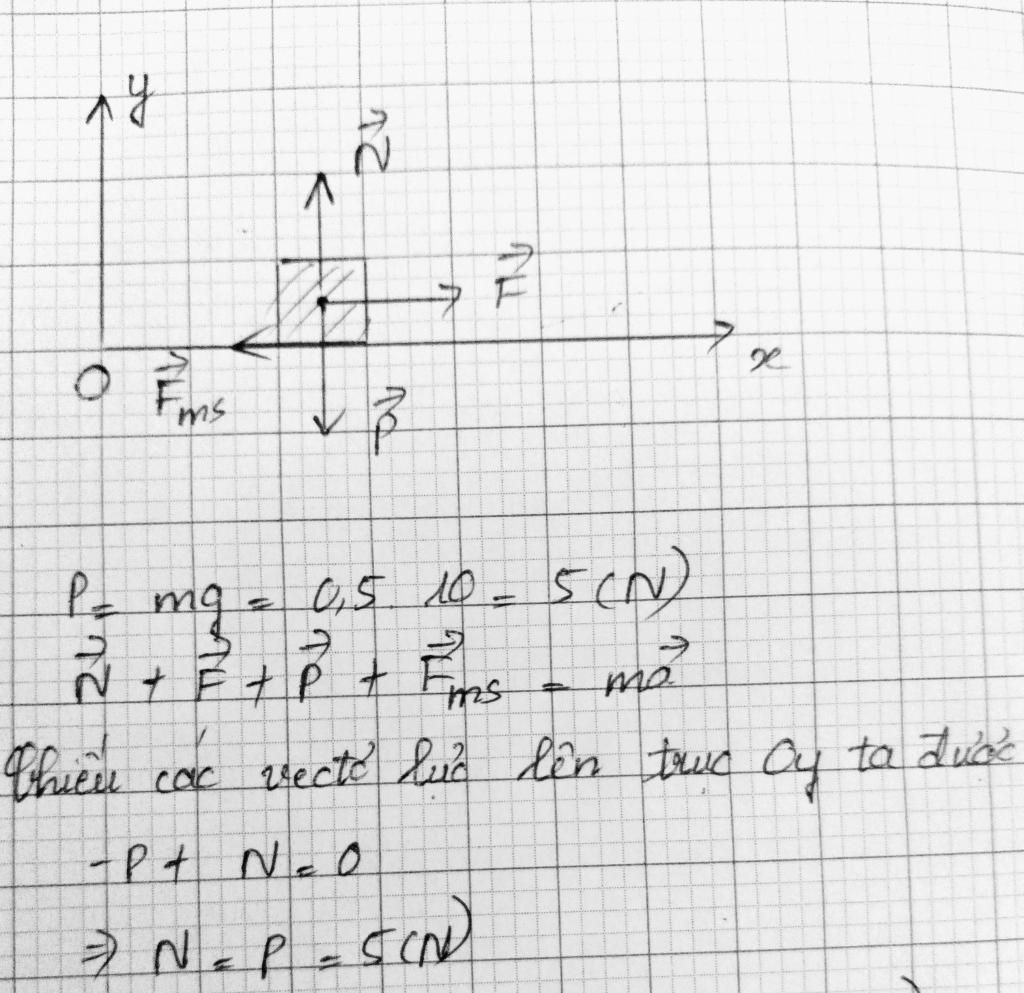 y
N⃗
F⃗
x
O
F⃗ms
P⃗
P = mg = 0,5. 10 = 5 (N)
N⃗ + F⃗ + P⃗ + F⃗ms = ma⃗
Chiếu các vectơ lực lên trục Oy ta được
-P + N = 0
⇒ N = P = 5(N)